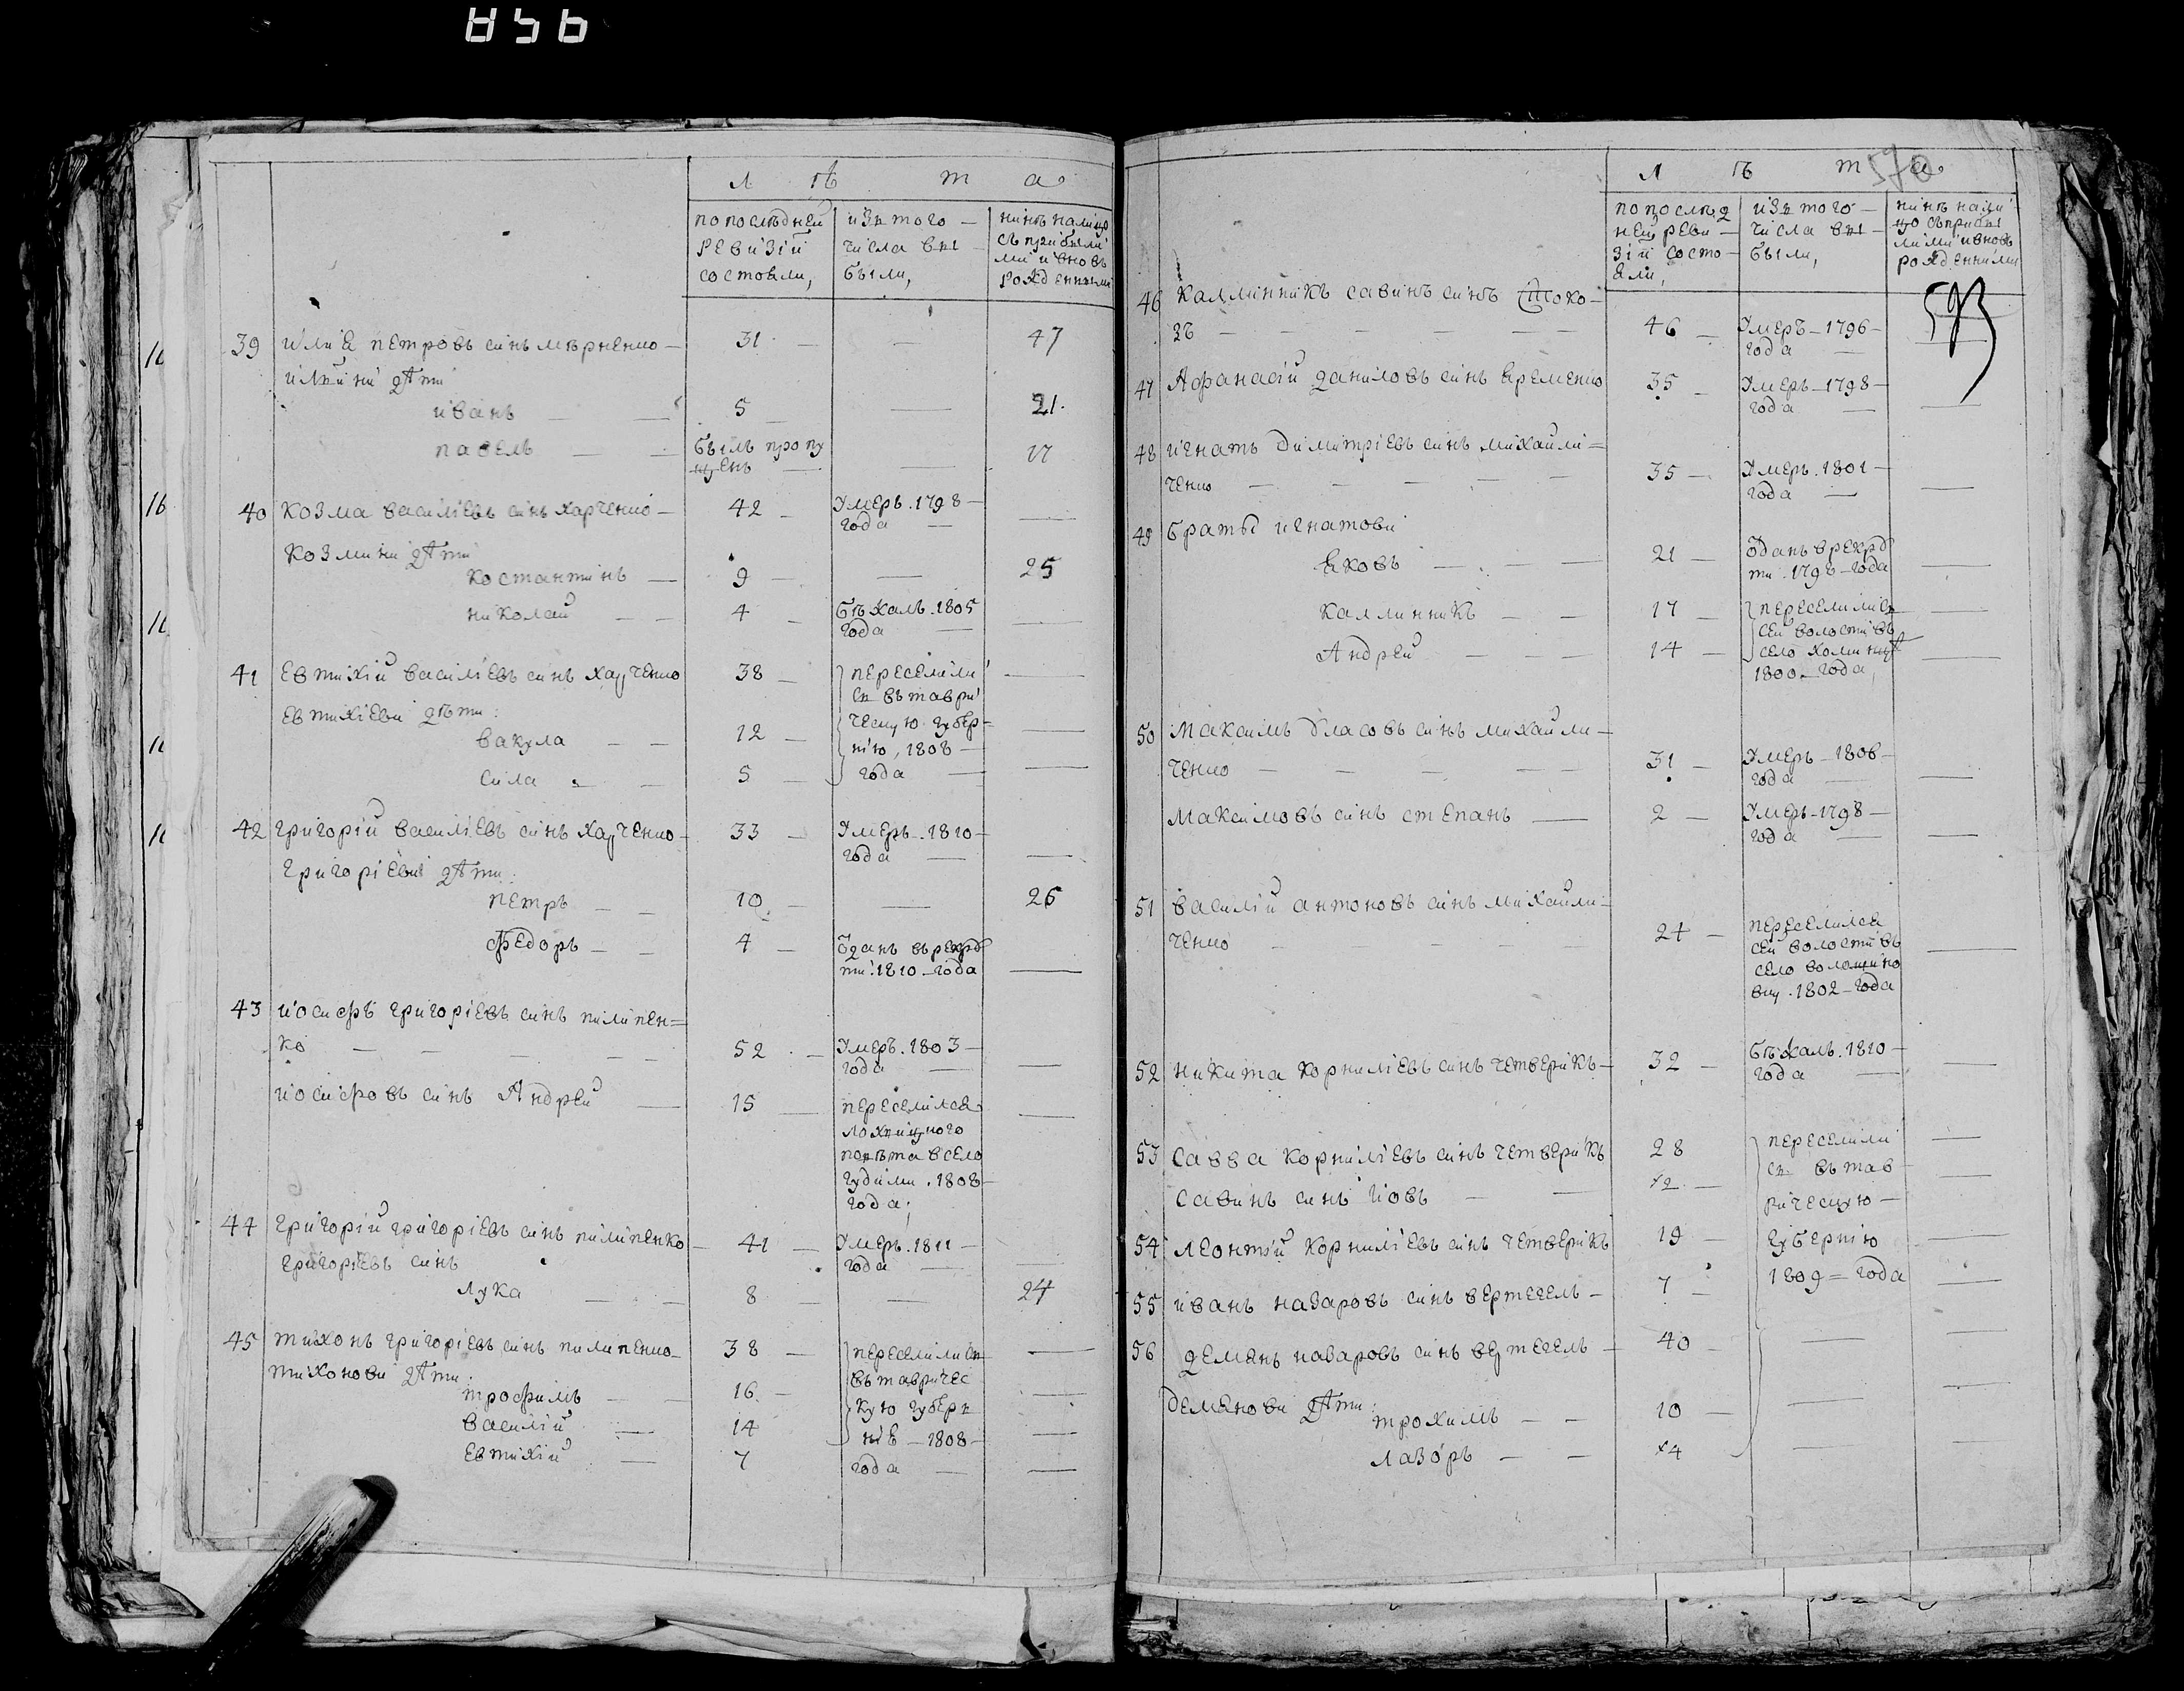 856
Л ѣ т а
по послѣдней
ревизіи
состояли,
изъ того
числа вы
были,
нинѣ налицо
съ прибыли
ми и вновь
рожденными
39 илия петровъ синъ мѣрненко 31 — 47
илиини дѣти
иванъ 5 — 21
павелъ былъ пропу
щенъ — 17
40 козма василіевъ синъ харченко 42 умеръ 1798
года —
козмини дѣти
костантинъ 9 — 25
николай 4 бѣжалъ 1805
года —
41 евтихій василіевъ синъ харченко 38 переселили
ся въ таври
евтихіеви дѣти:
ческую губер=
вакула 12
нію, 1808
сила 5 года
42 григорій василіевъ синъ харченко 33 умеръ 1810
года —
григоріеви дѣти:
петръ 10 — 26
федоръ 4 ѿданъ врекру
ти 1810 года
43 иосифъ григоріевъ синъ пилипен=
ко 52 умеръ 1803
года —
иосифовъ синъ Андрей 15 переселился
лохвицкого
повѣта всело
гудими 1808
года,
44 григорій григоріевъ синъ пилипенко 41 умеръ 1811
года —
григоріевъ синъ
лука 8 — 24
45 тихонъ григоріевъ синъ пилипенко 38 переселились
тихонови дѣти:
втавричес
трофимъ 16
кую губер
василій 14
нію 1808
евтихій 7 года
570
Л ѣ т а
по послѣд
ней реви
зіи состо
яли,
изъ того
числа вы
были,
нинѣ нали
цо съприбы
лими и вновь
рожденними
593
46 каллинникъ савинъ синъ
зъ 46 умеръ 1796
года
47 Афанасій даниловъ синъ яременко 35 умеръ 1798
года
48 игнатъ димитріевъ синъ михайли=
ченко 35 умеръ 1801
года
49 браты игнатови
яковъ 21 ѿданъ врекру
ти 1798 года
каллинникъ 17 переселились
сей волости въ
Андрей 14 село
1800 года,
50 максимъ власовъ синъ михайли
ченко 31 умеръ 1806
года
максимовъ синъ степанъ 2 умеръ 1798
года
51 василій антоновъ синъ михайли=
ченко 24 переселился
сей волости въ
село волошино
вку 1802 года
52 никита корниліевъ синъ четверикъ 32 бѣжалъ 1810
года
53 савва корниліевъ синъ четверикъ 28 переселили
ся въ тав
савинъ синъ иовъ 12
рическую
54 леонтій корниліевъ синъ четверикъ 19 губернію
1809 года
55 иванъ назаровъ синъ вертегелъ 7
56 демянъ назаровъ синъ вертегелъ 40
демянови дѣти:
трохимъ 10
лазоръ 4